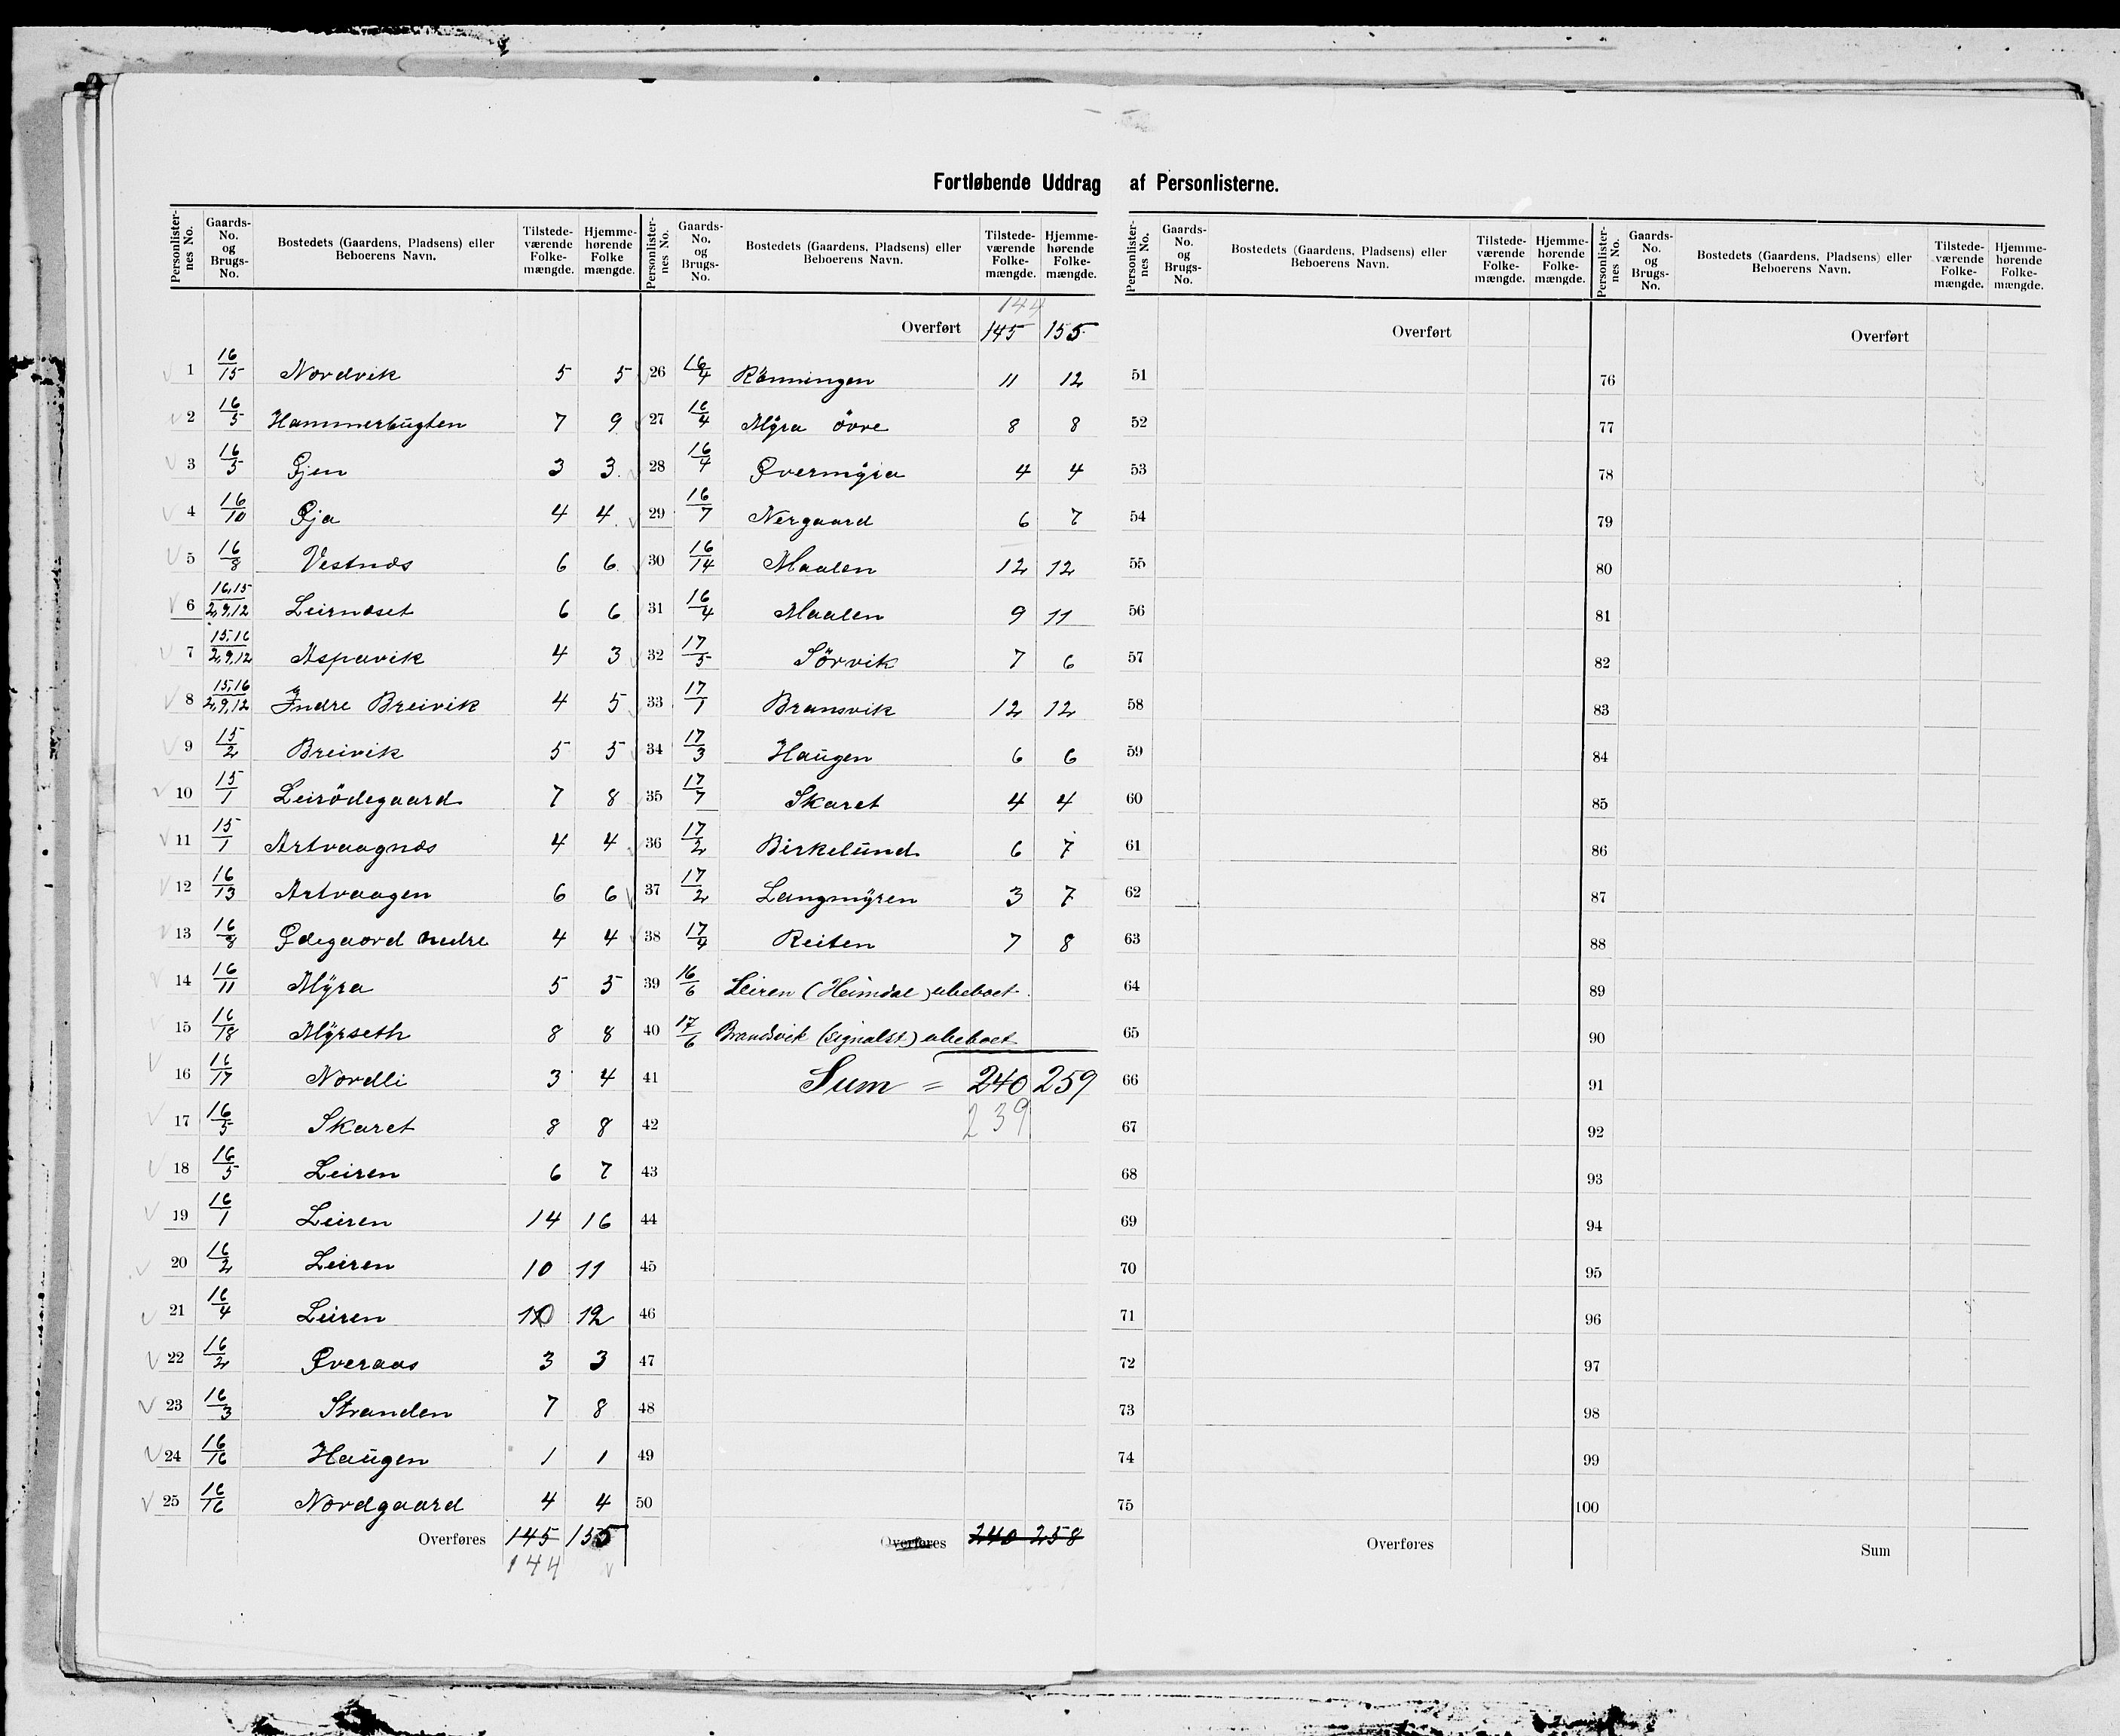 Fortløbende Uddrag af Personlisterne.
Personlister-nes No. | Gaards-No. og Brugs-No. | Bostedets (Gaardens, Pladsens) eller Beboerens Navn. | Tilstede-værende Folke-mængde. | Hjemme-hørende Folke mængde.
1 16/15 Nordvik 5 5
2 16/5 Hammerbugten 7 9
3 16/5 Øjen 3 3
4 16/10 Øja 4 4
5 16/8 Vestnæs 6 6
6 16,15/2,9,12 Leirnæset 6 6
7 15,16/2,9,12 Aspavik 4 3
8 15,16/2,9,12 Indre Breivik 4 5
9 15/2 Breivik 5 5
10 15/1 Leirödegaard 7 8
11 15/1 Artvaagnæs 4 4
12 16/13 Artvaagen 6 6
13 16/8 Ødegaard nedre 4 4
14 16/11 Myra 5 5
15 16/18 Myrseth 8 8
16 16/17 Nordli 3 4
17 16/5 Skaret 8 8
18 16/5 Leiren 6 7
19 16/1 Leiren 14 16
20 16/2 Leiren 10 11
21 16/4 Leiren 10 12
22 16/2 Øveraas 3 3
23 16/3 Stranden 7 8
24 16/16 Haugen 1 1
25 16/16 Nordgaard 4 4
Overføres 145 155
144
Personlister-nes No. | Gaards-No. og Brugs-No. | Bostedets (Gaardens, Pladsens) eller Beboerens Navn. | Tilstede-værende Folke-mængde. | Hjemme-hørende Folke-mængde.
144
Overført 145 155
26 16/4 Rönningen 11 12
27 16/4 Myra övre 8 8
28 16/4 Øvermyra 4 4
29 16/7 Nergaard 6 7
30 16/14 Maalen 12 12
31 16/4 Maalen 9 11
32 17/5 Sörvik 7 6
33 17/1 Bransvik 12 12
34 17/3 Haugen 6 6
35 17/7 Skaret 4 4
36 17/2 Birkelund 6 7
37 17/2 Langmyren 3 7
38 17/4 Reiten 7 8
39 16/6 Leiren (Heimdal) ubeboet
40 17/6 Brandsvik (signalst) ubeboet
41 Sum = 240 259
42 239
43
44
45
46
47
48
49
50
Overføres 240 258
Personlister-nes No. | Gaards-No. og Brugs-No. | Bostedets (Gaardens, Pladsens) eller Beboerens Navn. | Tilstede-værende Folke-mængde. | Hjemme-hørende Folke-mængde.
Overført
51
52
53
54
55
56
57
58
59
60
61
62
63
64
65
66
67
68
69
70
71
72
73
74
75
Overføres
Personlister-nes No. | Gaards-No. og Brugs-No. | Bostedets (Gaardens, Pladsens) eller Beboerens Navn. | Tilstede-værende Folke-mængde. | Hjemme-hørende Folke-mængde.
Overført
76
77
78
79
80
81
82
83
84
85
86
87
88
89
90
91
92
93
94
95
96
97
98
99
100
Sum